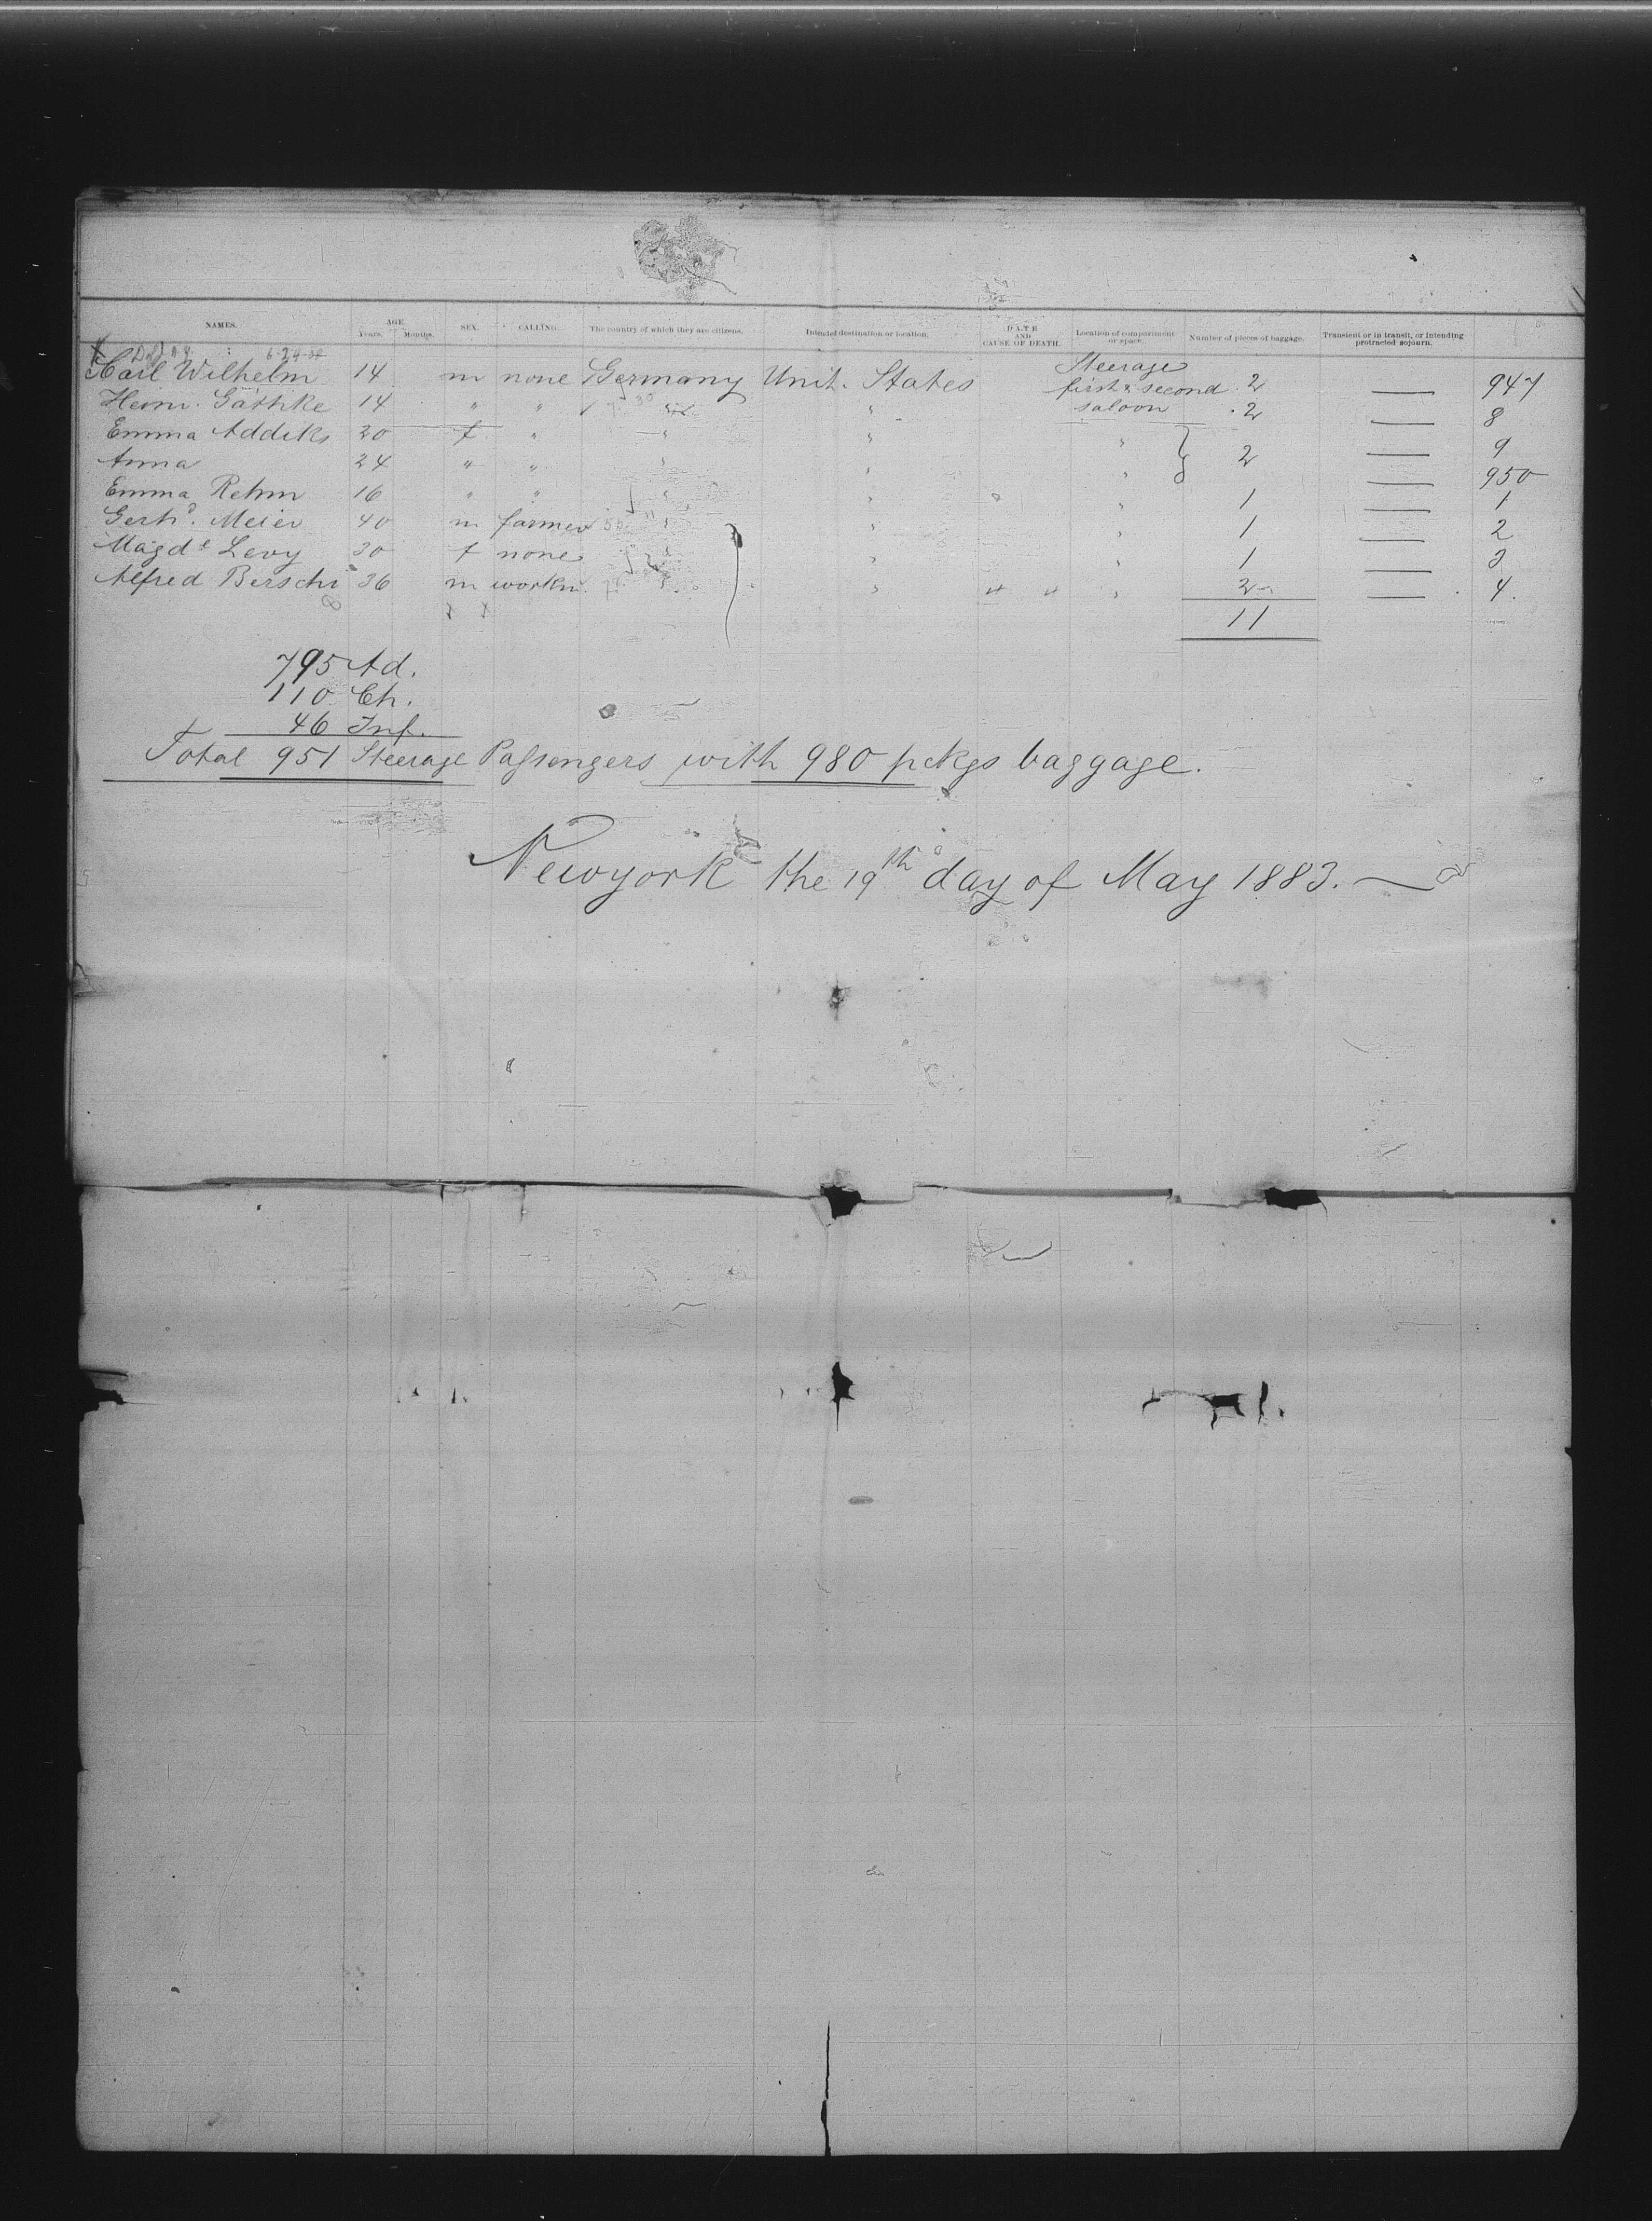 NAMES. AGE. Years. Months. SEX. CALLING. The country of which they are citizens. Intended destination or location. DATE AND CAUSE OF DEATH. Location of compartment or space. Number of pieces of baggage. Transient or in transit, or intending protracted sojourn.
Carl Wilhelm 14 m none Germany Unit. States Steerage first & second saloon 2 — 947
Heinr. Gäthke 14 " " " " 2 — 8
Emma Addiks 20 f " " " " 2 — 9
Anna 24 " " " " " — 950
Emma Rehm 16 " " " " " 1 — 1
Gerhd. Meier 40 m farmer " " " 1 — 2
Magde Levy 30 f none " " " 1 — 3
Alfred Berschi 36 m workm " " " 2 — 4.
11
795 Ad.
110 Ch.
46 Inf.
Total 951 Steerage Passengers with 980 pckgs baggage.
Newyork the 19th day of May 1883.